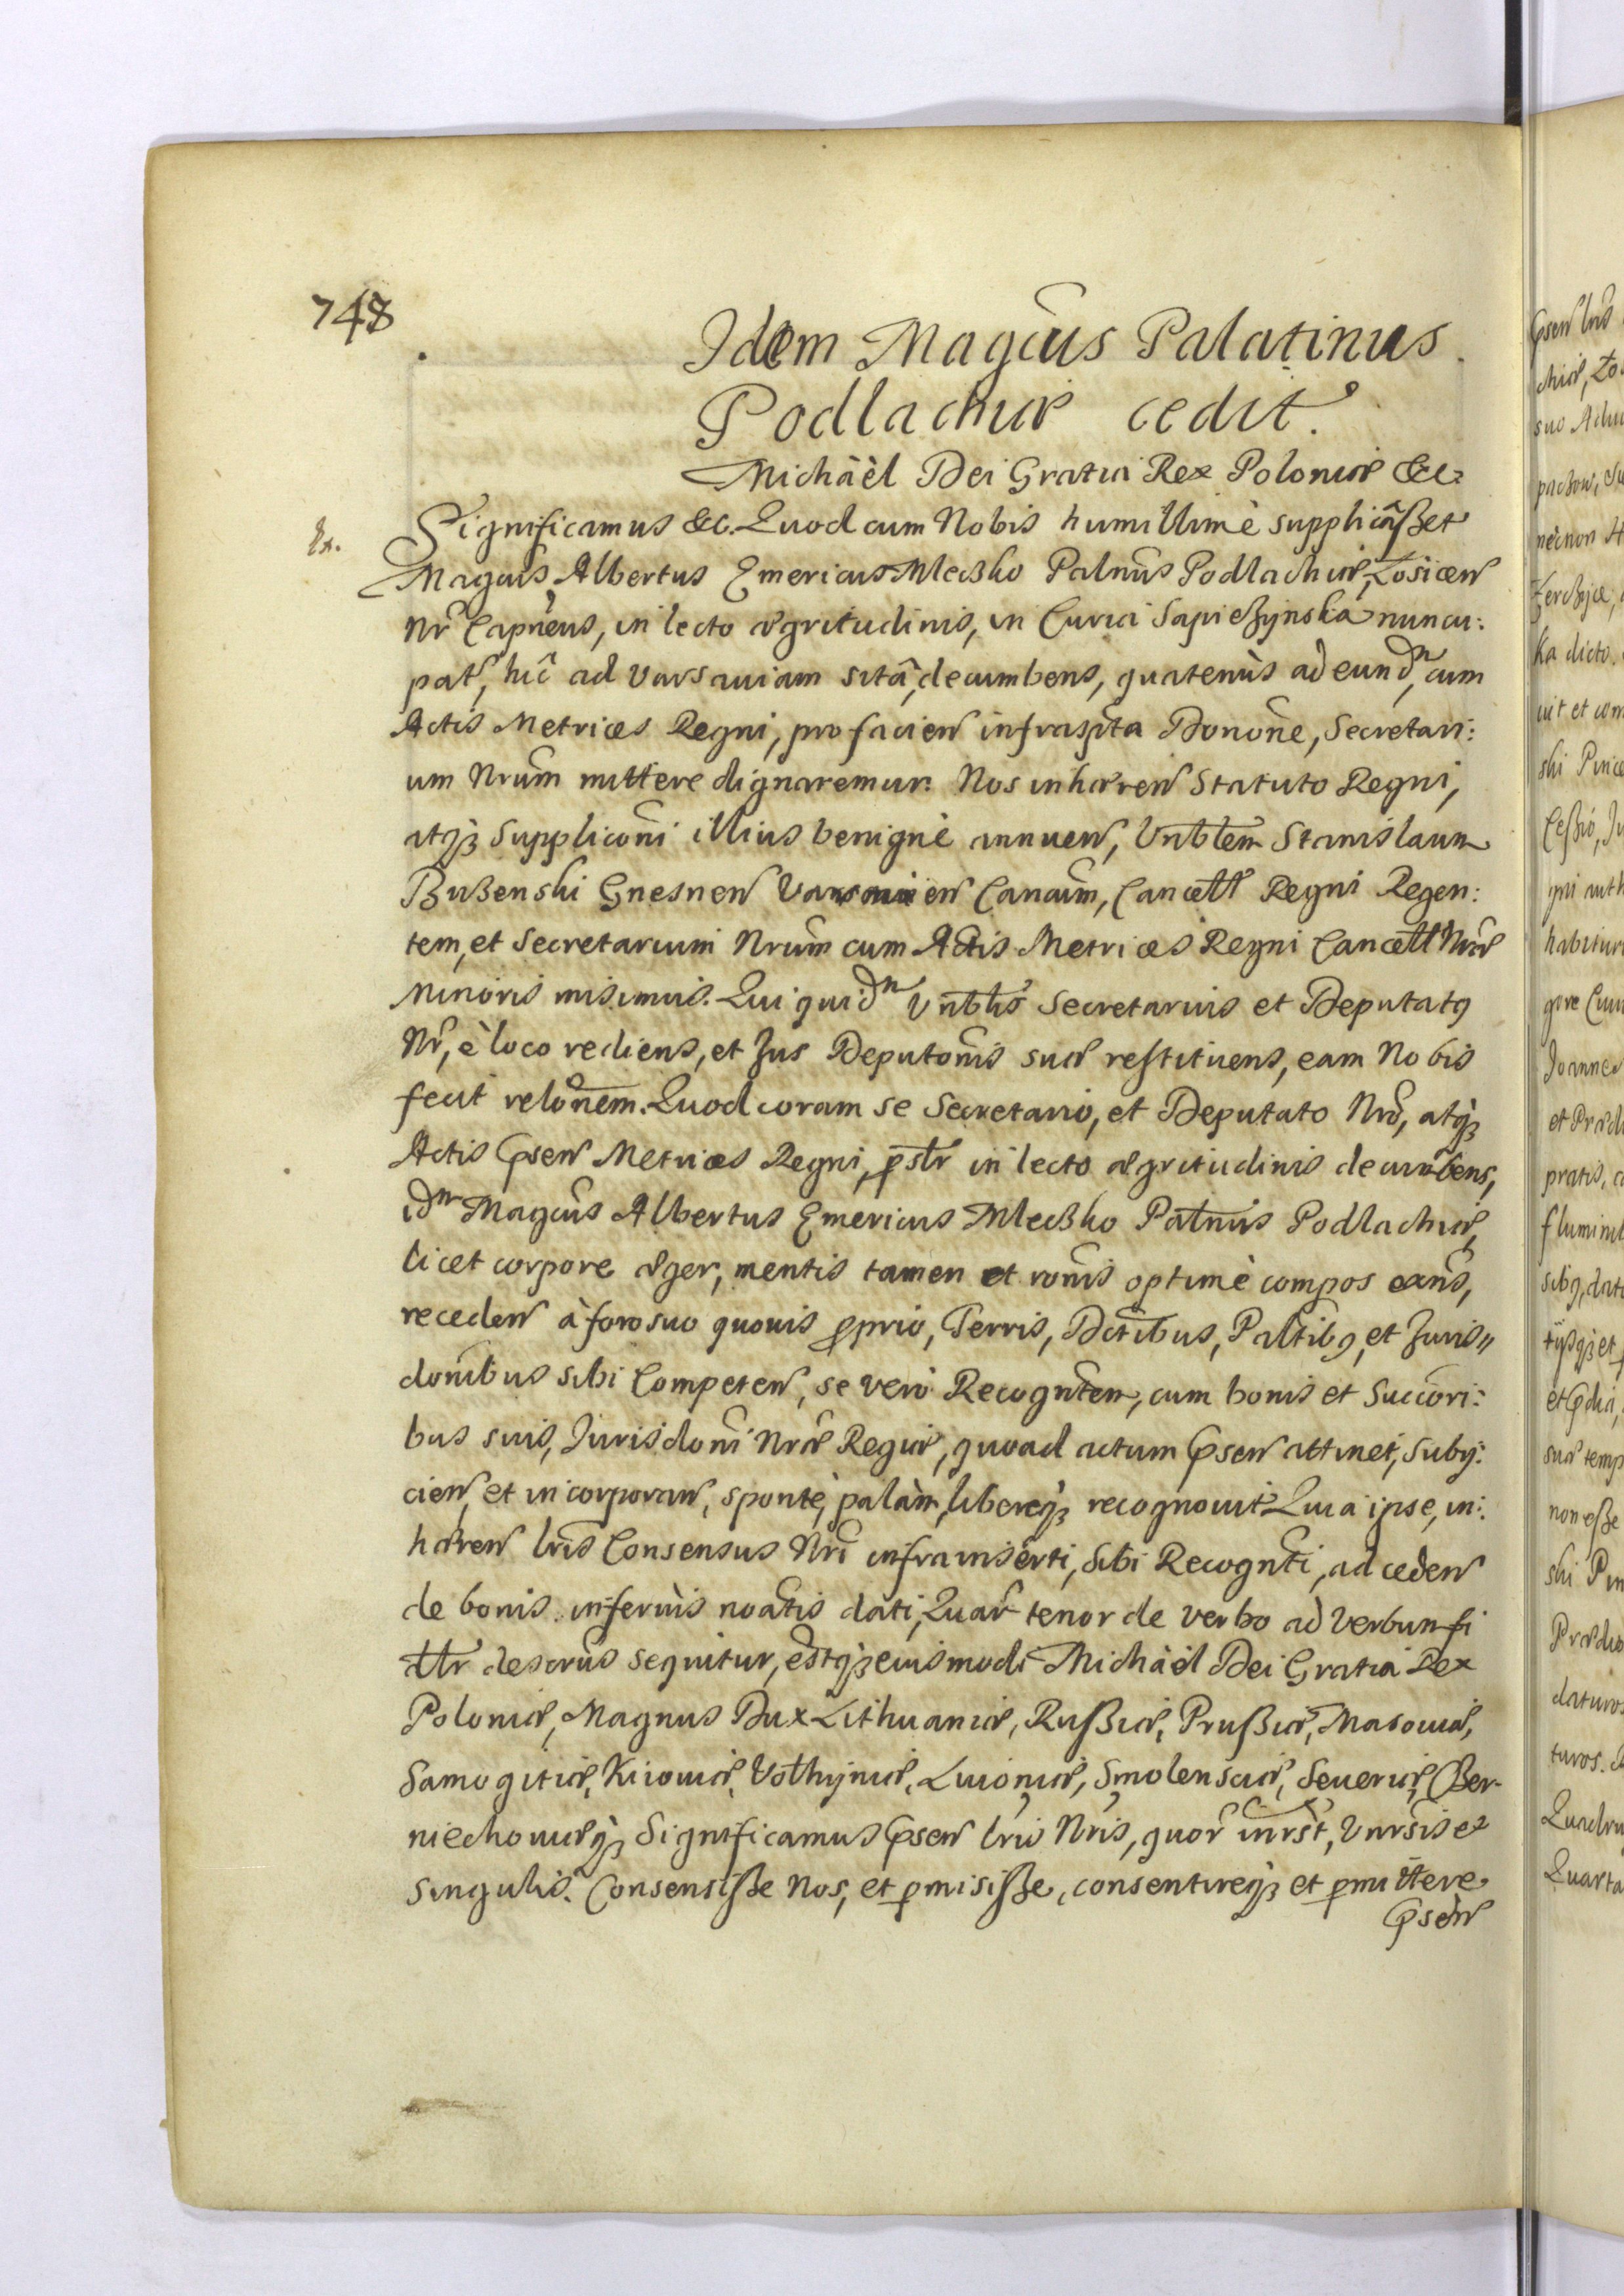 748
Idem Magcûs Palatinus
Podlachiæ cedit.
Michâèl Dei Gratia Rex Poloniæ &c.
Ex.
Significamus &c. Quod cum Nobis humillimè supplicâßet
Magcûs Albertus Emericus Mleczko Palnûs Podlachiæ, Łosicen
Nr̃ Capnêus, in lecto ægritudinis, in Curia Sapieżynska nuncu:
pat, hîc ad Varsauiam sitâ, decumbens, quatenùs ad eund̃m, cum
Actis Metrices Regni, pro facien infraspta Donône, Secretari:
um Nrûm mittere dignaremur. Nos inhæren Statuto Regni,
atq₃ Suppliconî illius benignè annuen, Vnblêm Stanislaum
Bużenski Gnesnen Varsauien Canaûm, Cancell Regni Regen:
tem, et Secretarium Nrûm cum Actis Metrices Regni Cancell Nrãe
Minoris misimus. Qui quid̃m Vnblîs Secretarius et Deputatq
Nr̃, è loco rediens, et Jus Deputonîs suæ restituens, eam Nobis
fecit relônem. Quod coram se Secretario, et Deputato Nrô, atq₃
Actis p̃sen Metrices Regni, pstr̃ in lecto ægritudinis decumbens,
id̃m Magcûs Albertus Emericus Mleczko Palnûs Podlachiæ,
licet corpore æger, mentis tamen et ronîs optimè compos exñs,
receden à foro suo quouis p̱prio, Terris, Dctîbus, Paltîbq, et Juris
donîbus sibi Competen, se verò Recogntêm, cum bonis et Succôri:
bus suis, Jurisdonî Nrãe Regiæ, quoad actum p̃sen attinet, Subij:
cien, et incorporan, sponte, palàm, libereq₃ recognouit Quia ipse, in:
hæren lrîs Consensus Nrî infrainsêrti, Sibi Recogntî, ad ceden
de bonis inferiùs noatîs dati, Quar̃ tenor de verbo ad Verbum fi
tlr̃ descrûs sequitur, estq₃ eiusmodi Michâèl Dei Gratia Rex
Poloniæ, Magnus Dux Lithuaniæ, Rußiæ, Prußiæ, Masouiæ,
Samogitiæ, Kiiouiæ, Volhyniæ, Liuoniæ, Smolensciæ, Seueriæ, Czer-
niechouiæq₃ Significamus p̃sen lrîs Nrîs, quor̃ intrst̃, Vnrsîs et
Singulis. Consensiße Nos, et p̱misiße, consentireq₃ et p̱mittere
p̃sen